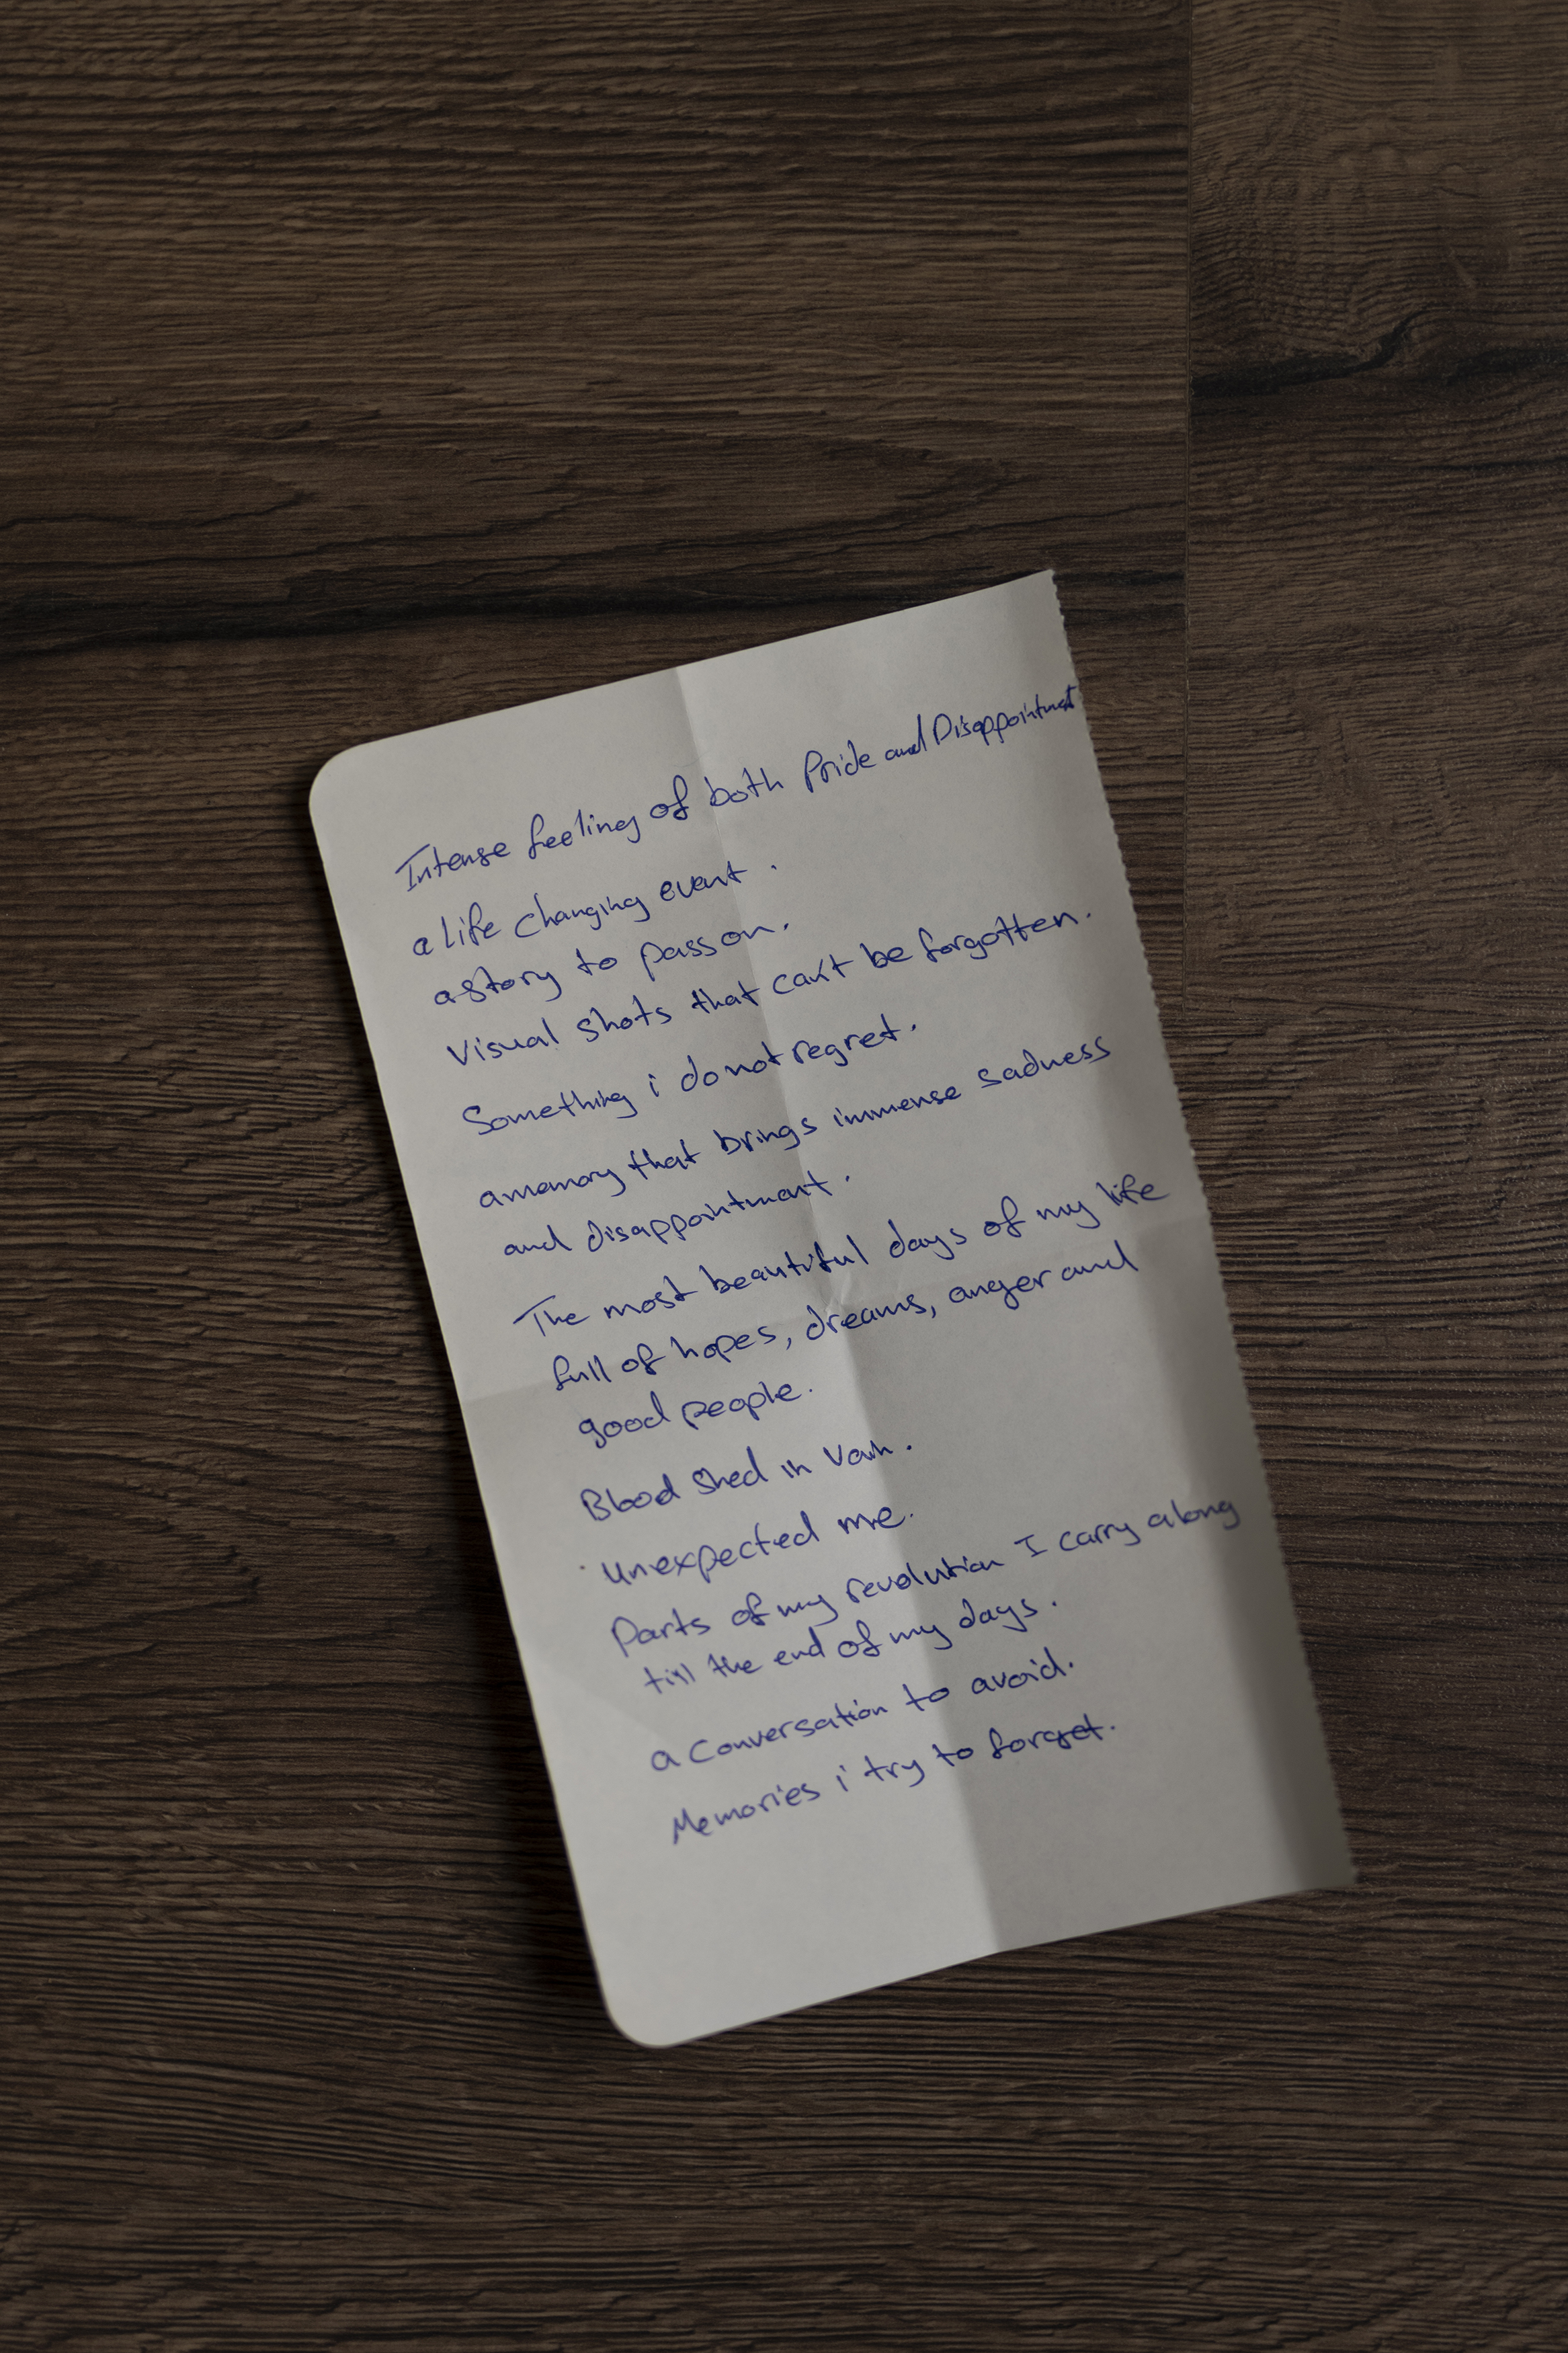 Intense feeling of both Pride and Disappointment
a life changing event .
a story to pass on.
Visual shots that can't be forgotten.
Something i do not regret.
a memory that brings immense sadness
and disappointment.
The most beautiful days of my life
full of hopes, dreams, anger and
good people.
Blood shed in Vain.
Unexpected me.
Parts of my revolution I carry along
till the end of my days.
a Conversation to avoid.
Memories i try to forget.